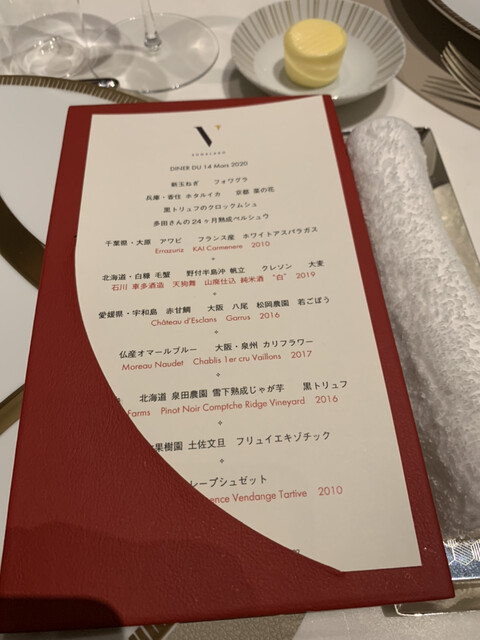 V
DINER DU 14 Mars 2020
新玉ねぎ フォワグラ
兵庫・香住 ホタルイカ 京都 菜の花
黒トリュフのクロックムシュ
多田さんの24ヶ月熟成ペルシュウ
千葉県・大原 アワビ フランス産 ホワイトアスパラガス
Errazuriz KAI Carmenere 2010
北海道・白糠 毛蟹 野付半島沖 帆立 クレソン 大麦
石川 車多酒造 天狗舞 山廃仕込 純米酒 "白" 2019
愛媛県・宇和島 赤甘鯛 大阪 八尾 松岡農園 若ごぼう
Château d'Esclans Garrus 2016
仏産オマールブルー 大阪・泉州 カリフラワー
Moreau Naudet Chablis 1er cru Vaillons 2017
北海道 泉田農園 雪下熟成じゃが芋 黒トリュフ
Farms Pinot Noir Comptche Ridge Vineyard 2016
果樹園 土佐文旦 フリュイエキゾチック
レープシュゼット
ence Vendange Tartive 2010